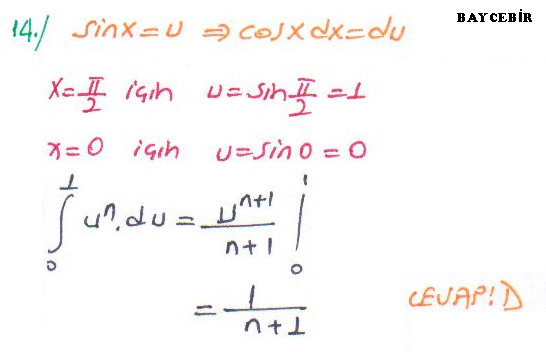 BAYCEBİR
14./ sinx=u ⇒ cosx dx=du
x=π/2 için u=sin π/2 =1
x=0 için u=sin0=0
∫₀¹ uⁿ.du = uⁿ⁺¹/(n+1) |₀¹
= 1/(n+1)
CEVAP: D